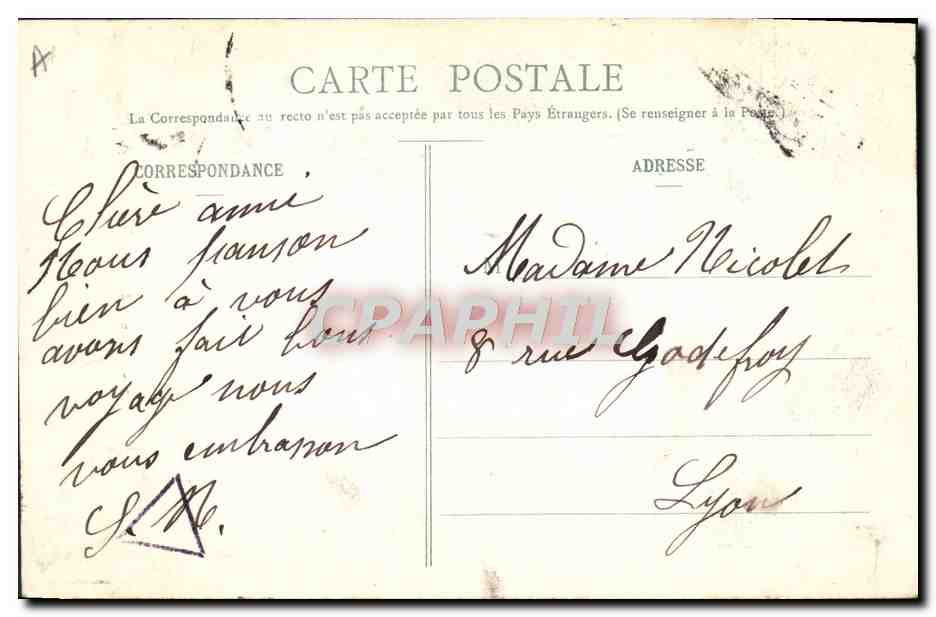 A
CARTE POSTALE
La Correspondance au recto n'est pas acceptée par tous les Pays Étrangers. (Se renseigner à la Poste.)
CORRESPONDANCE
Chère amie
Nous panson
bien à vous
avons fait bons
voyage nous
vous embrasson
S. N.
ADRESSE
M
Madame Nicolet
8 rue Godefroy
Lyon
CPAPHIL